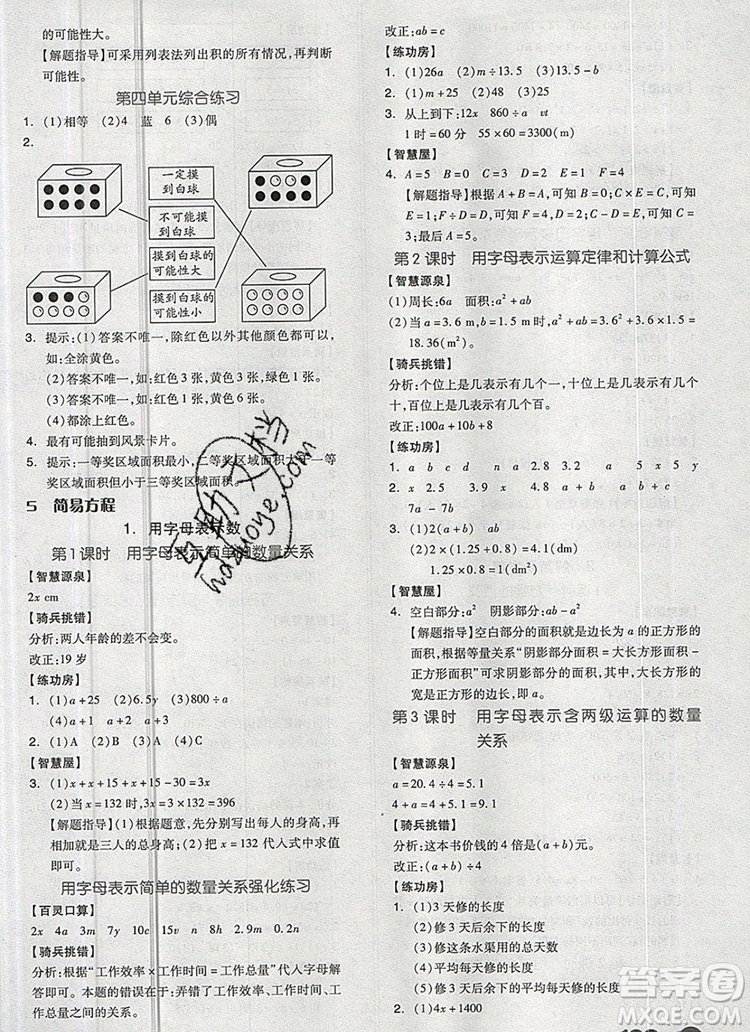 的可能性大。
【解题指导】可采用列表法列出积的所有情况,再判断
可能性。
第四单元综合练习
1. (1)相等 (2)4 蓝 6 (3)偶
2.
一定摸
到白球
不可能摸
到白球
摸到白球的
可能性大
摸到白球的
可能性小
3. 提示:(1)答案不唯一,除红色以外其他颜色都可以,
如:全涂黄色。
(2)答案不唯一,如:红色 3 张,黄色 5 张。
(3)答案不唯一,如:红色 3 张,黄色 6 张。
(4)都涂上红色。
4. 最有可能抽到风景卡片。
5. 提示:一等奖区域面积最小,二等奖区域面积大于一等
奖区域面积但小于三等奖区域面积。
5 简易方程
1. 用字母表示数
第 1 课时 用字母表示简单的数量关系
【智慧源泉】
2x cm
【骑兵挑错】
分析:两人年龄的差不会变。
改正:19 岁
【练功房】
1. (1)a+25 (2)6.5y (3)800÷a
(4)x-8-17
2. (1)B (2)C (3)A (4)C
【智慧屋】
3. (1)x+x+15+x+15-30=3x
(2)当 x=132 时,3x=3×132=396
【解题指导】根据题意,先分别写出每人的身高,再
相加求出三人的总高,最后把 x=132 代入式中求值
即可。
用字母表示简单的数量关系强化练习
【百灵口算】
2x 4a 3m 7y 10c 15v n 8h 2.9m 0.2n
【骑兵挑错】
分析:根据“工作效率×工作时间=工作总量”代入字母解
答即可。本题的错误在于弄错了工作效率、工作时间、工
作总量之间的关系。
改正:ab=c
【练功房】
1. (1)26a (2)m÷13.5 (3)13.5-b
2. (1)m+25 (2)48 (3)25
3. 从上到下:12x 860÷a vt
1 时=60 分 55×60=3300(m)
【智慧屋】
4. A=5 B=0 C=6 D=1 E=2 F=3
【解题指导】根据 A+B=A,可知 B=0;C×D=C,可
知 D=1;F÷D=F,可知 F=3;E+D=F,可知 E=
2;最后 A=5。
第 2 课时 用字母表示运算定律和计算公式
【智慧源泉】
(1)周长:6a 面积:a²+a²
(2)当 a=3.6 m,b=1.5 m 时,a²+ab=3.6²+3.6×1.5=
18.36(m²)
【骑兵挑错】
分析:个位上是几表示有几个一,十位上是几表示有几个
十,百位上是几表示有几个百。
改正:100a+10b+8
【练功房】
1. a b c d a c b c a d
2. x 2.5 x 9.5 x 4.5 x 3.8
7a-7b
3. (1)2(a+b) ab
(2)(a+b)×2=(1.25+0.8)×2=4.1(dm)
1.25×0.8=1(dm²)
【智慧屋】
4. 空白部分:a² 阴影部分:ab-a²
【解题指导】空白部分的面积就是边长为 a 的正方形的
面积,根据等量关系“大长方形面积-正方形面积=
阴影部分面积”可求阴影部分的面积,其中正方形
的宽是正方形的边长,即 a。
第 3 课时 用字母表示含两级运算的数量
关系
【智慧源泉】
a=20.4÷4=5.1
4+a=4+5.1=9.1
【骑兵挑错】
分析:这本书价钱的 4 倍是(a+b)元。
改正:(a+b)
【练功房】
1. (1)3 天修的长度
(2)修 3 天后余下的长度
(3)修这条水渠用的总天数
(4)平均每天修的长度
(5)修 3 天后余下的平均每天修的长度
2. (1)4x+1400